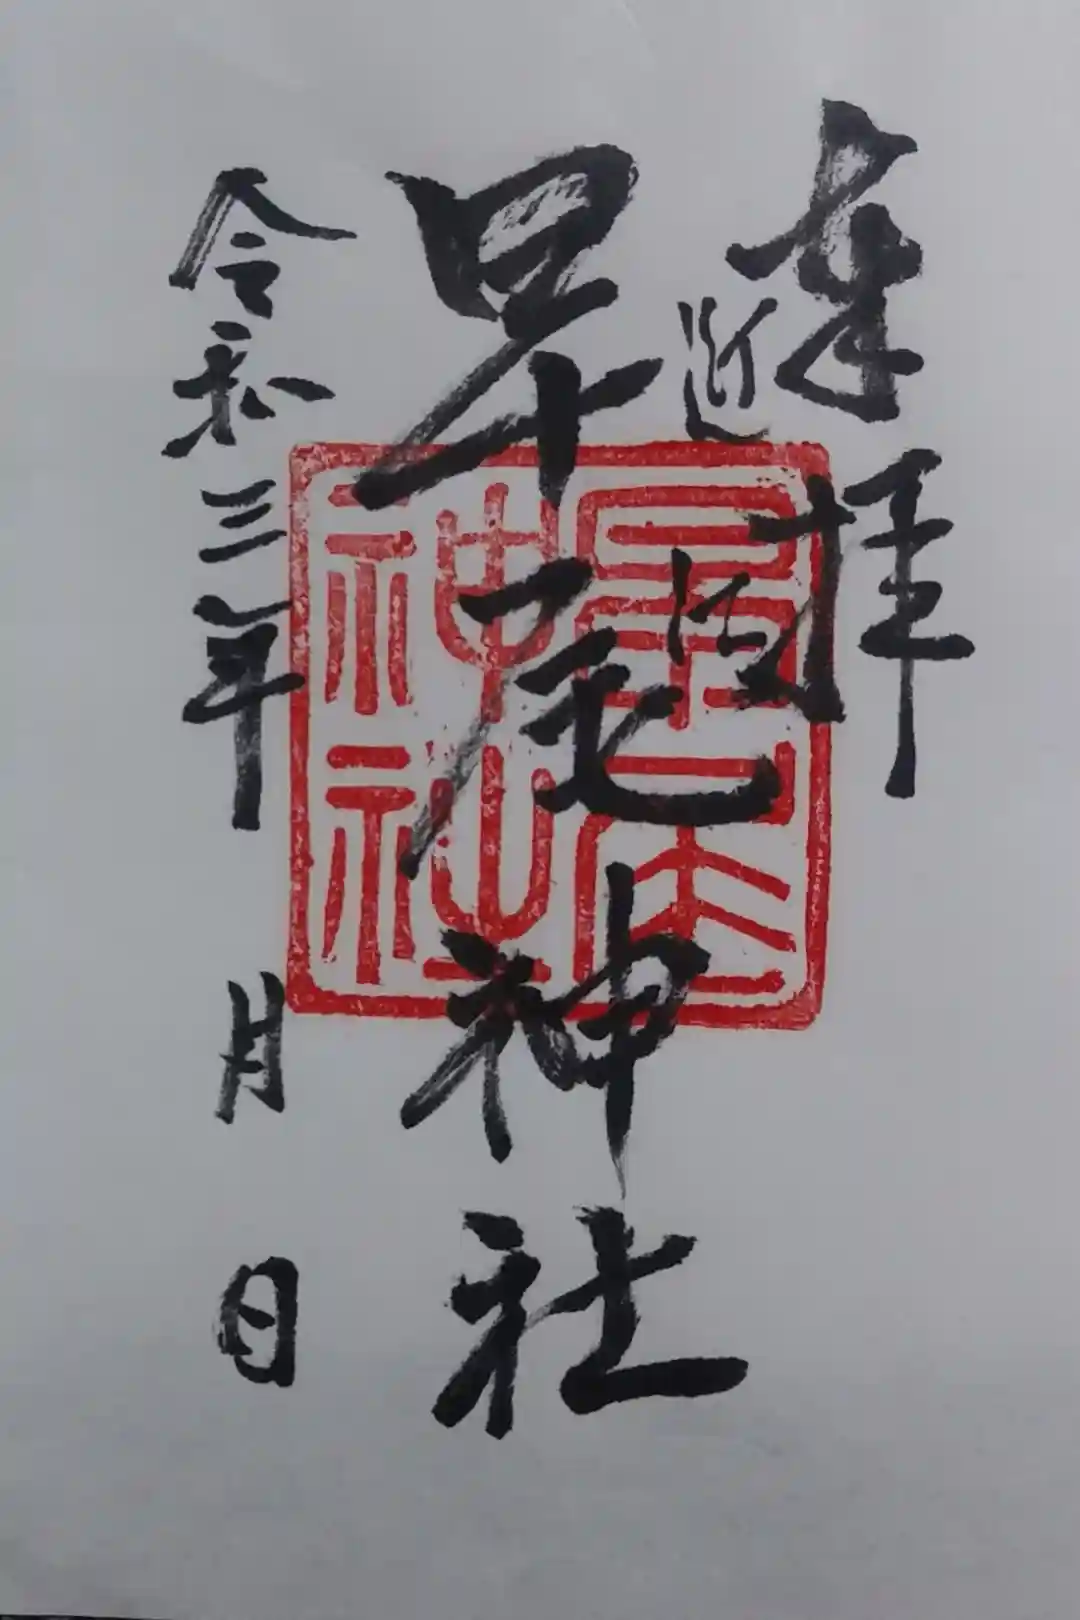 奉拝
近江
早尾神社
令和三年 月 日
早尾神社